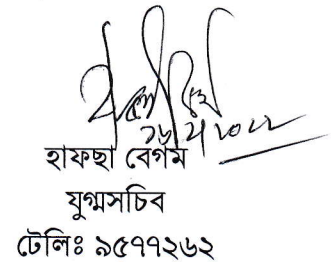 হাফছা বেগম
যুগ্মসচিব
টেলিঃ ৯৫৭৭২৬২